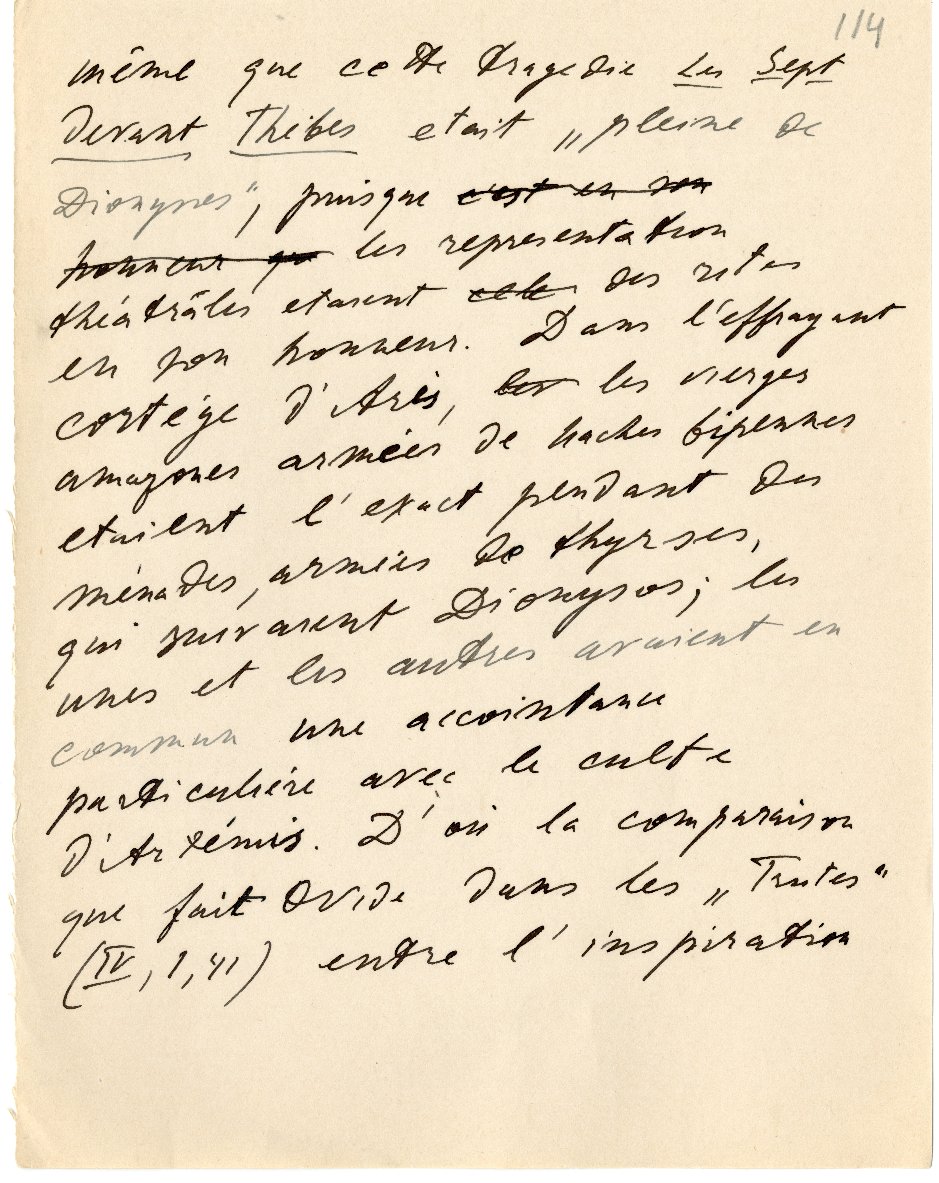 114
même que cette tragedie Les Sept
Devant Thèbes etait „pleine de
Dionysos", puisque c'est en son
honneur qu les representation
théâtrâles etaient cele des rites
en son honneur. Dans l'effrayant
cortége d'Arès, les les vierges
amazones armées de haches bipennes
etaient l'exact pendant des
ménades, armées de thyrses,
qui suivaient Dionysos; les
unes et les autres avaient en
commun une accointance
particulière avec le culte
d'Artémis. D'où la comparaison
que fait Ovide dans les „Tristes"
(IV, 1, 41) entre l'inspiration